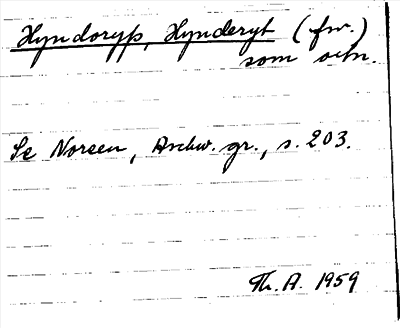 Hyndoryþ, Hynderyt (fsv.)
som ortn.
Se Noreen, Aschw. gr., s. 203.
Th. A. 1959